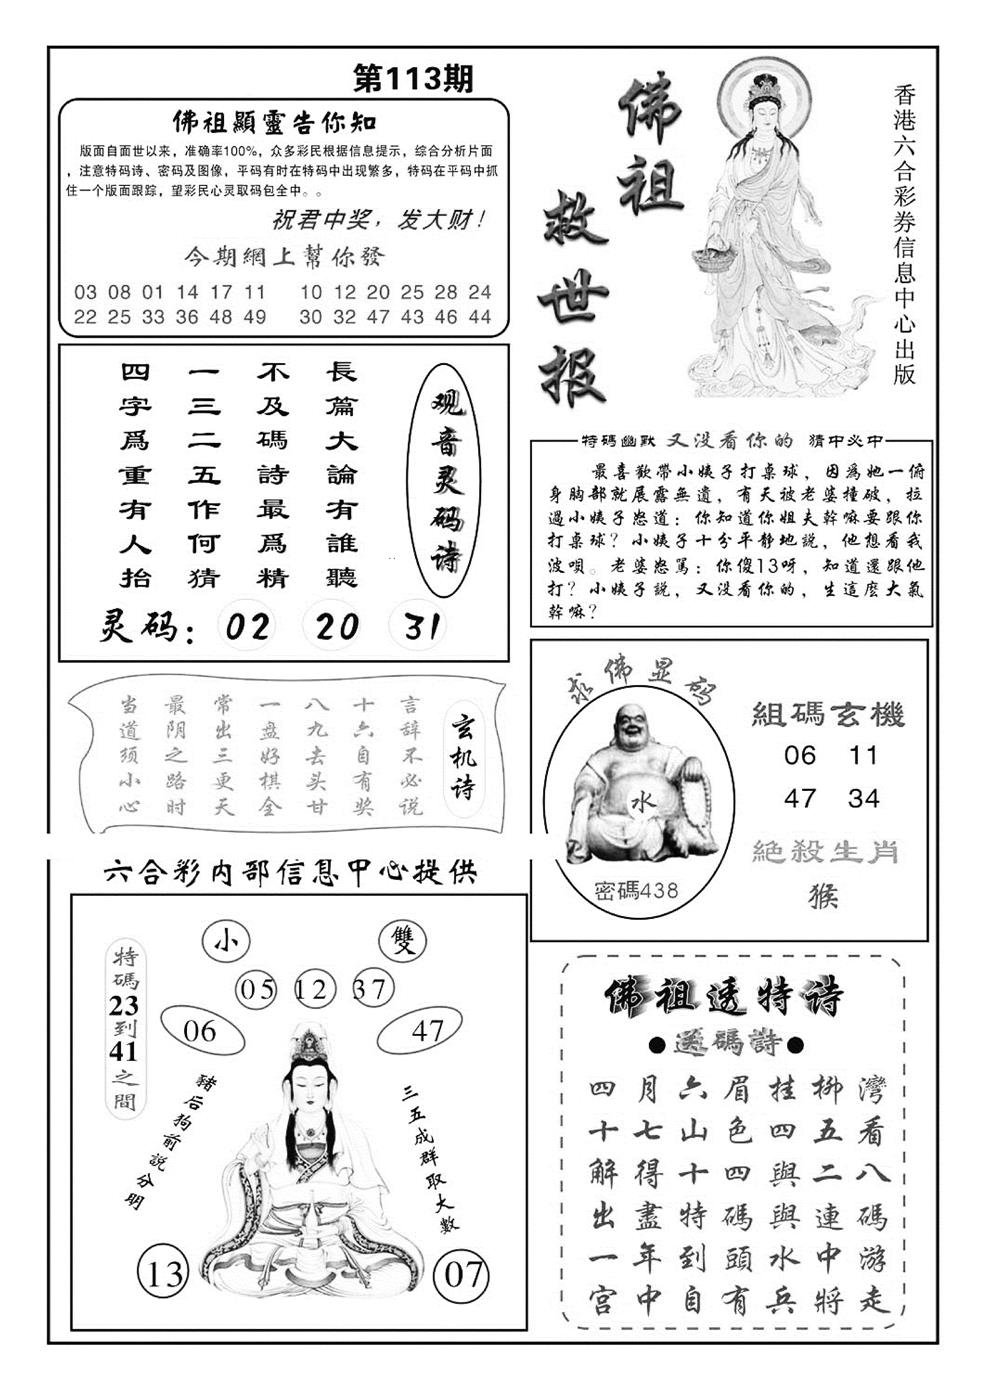 第113期
佛祖顯靈告你知
版面自面世以来，准确率100%，众多彩民根据信息提示，综合分析片面
，注意特码诗、密码及图像，平码有时在特码中出现繁多，特码在平码中抓
住一个版面跟踪，望彩民心灵取码包全中。。
祝君中奖，发大财！
今期網上幫你發
03 08 01 14 17 11 10 12 20 25 28 24
22 25 33 36 48 49 30 32 47 43 46 44
佛祖
救世报
香港六合彩券信息中心出版
观音灵码诗
長篇大論有誰聽
不及碼詩最爲精
一三二五作何猜
四字爲重有人抬
灵码：02 20 31
特碼幽默 又没看你的 猜中必中
最喜歡帶小姨子打桌球，因爲她一俯
身胸部就展露無遺，有天被老婆撞破，拉
過小姨子怒道：你知道你姐夫幹嘛要跟你
打桌球？小姨子十分平静地説，他想看我
波唄。老婆怒罵：你傻13呀，知道還跟他
打？小姨子説，又没看你的，生這麽大氣
幹嘛？
玄机诗
言辞不必说
十六自有奖
八九去头甘
一盘好棋全
常出三更天
最阴之路时
当道须小心
求佛显码
水
密碼438
組碼玄機
06 11
47 34
絶殺生肖
猴
六合彩内部信息中心提供
特碼23到41之間
小 雙
05 12 37
06 47
豬后狗前説分明
三五成群取大數
13 07
佛祖透特诗
●送碼詩●
灣看八碼游走
柳五二連中將
挂四與與水兵
眉色四碼頭有
六山十特到自
月七得盡年中
四十解出一宫